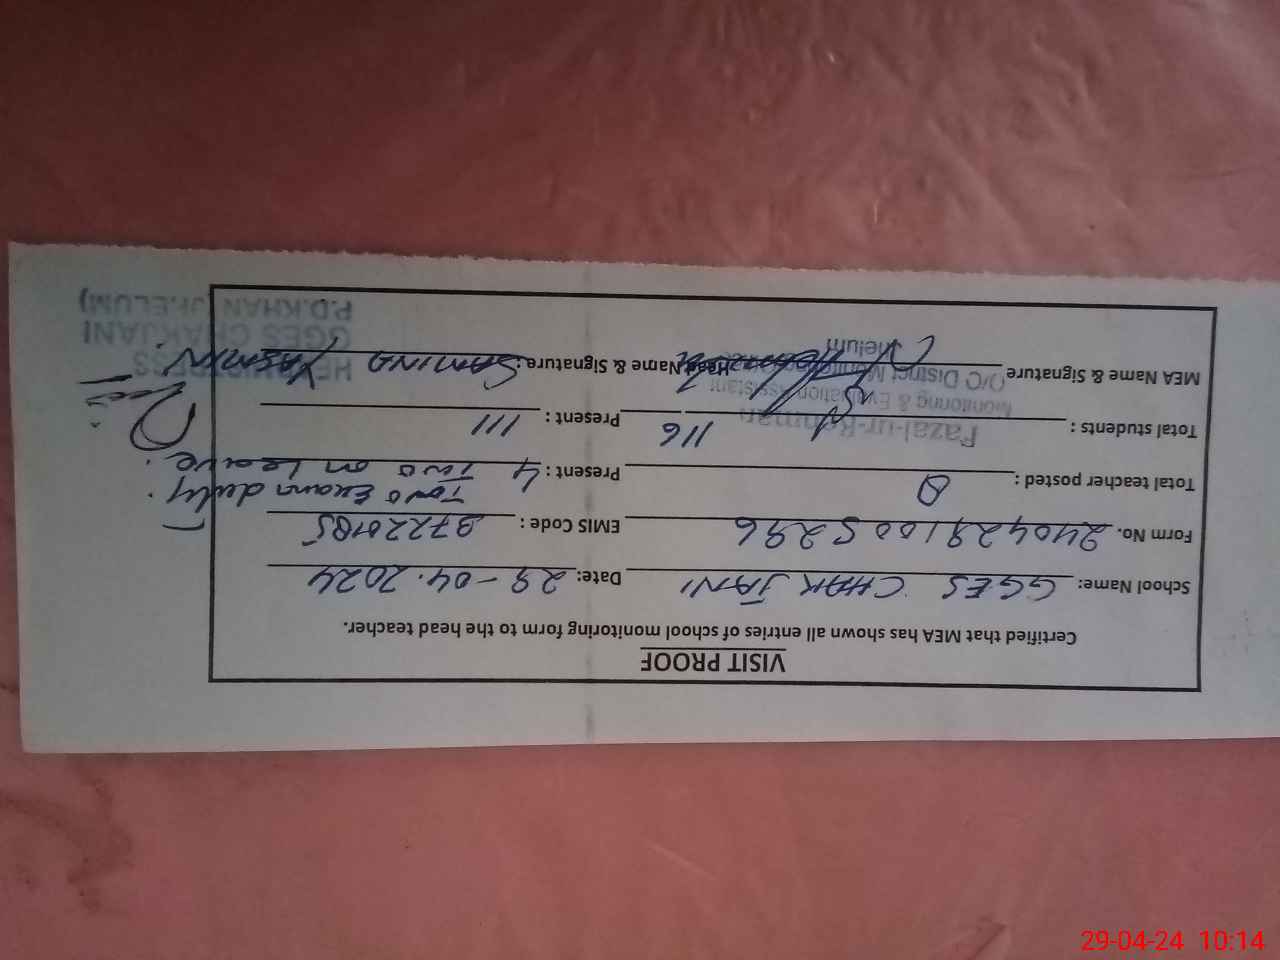 VISIT PROOF
Certified that MEA has shown all entries of school monitoring form to the head teacher.
School Name: GGES CHAK JANI Date: 29-04-2024
Form No. 240429100S296 EMIS Code:
Total teacher posted: 8 Present: 4 Two Exam duty. Two on Leave.
Total students: 116 Present: 111
MEA Name & Signature Head Name & Signature: SAMINA YASMIN.
Fazal-ur-Rehman
Monitoring & Evaluation Assistant
O/C District Monitoring
Jhelum
HEADMISTRESS
GGES CHAKJANI
P.D.KHAN (JHELUM)
29-04-24 10:14